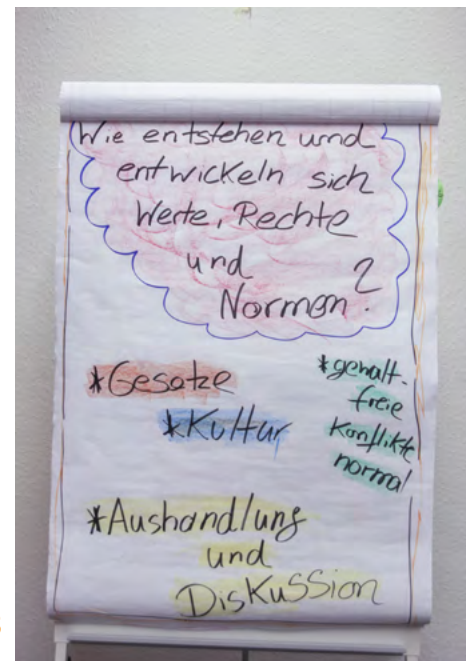 Wie entstehen und
entwickeln sich
Werte, Rechte
und
Normen?
*Gesetze
*Kultur
*gewalt-
freie
Konflikte
normal
*Aushandlung
und
Diskussion